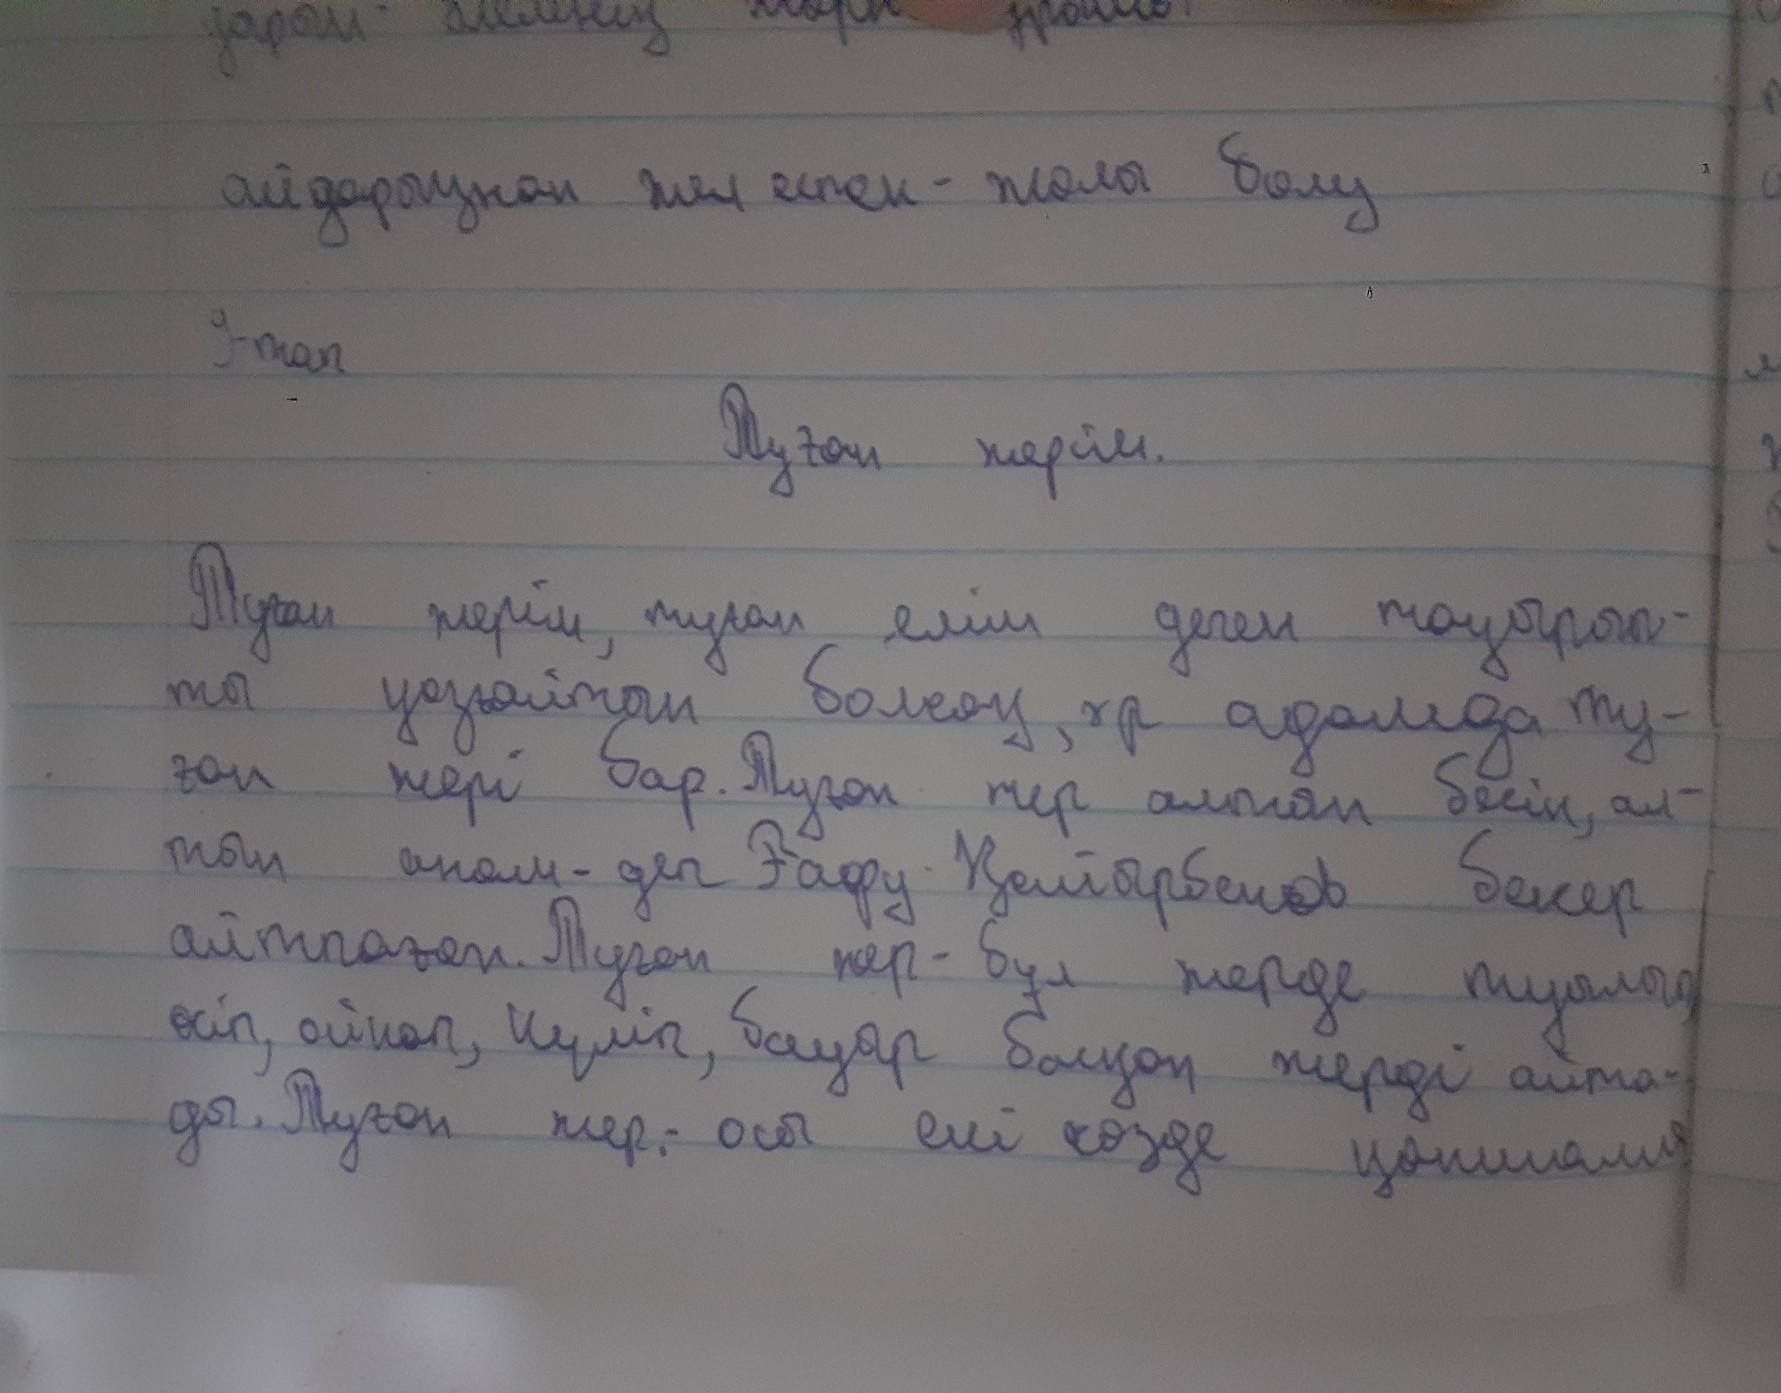 айдарыңнан жел еспек - жолы болу
9-тап
Туған жерім.
Туған жерім, туған елім деген тақырып-
ты қозғайтын болсақ, әр адамда ту-
ған жері бар. Туған жер алтын бесік, ал-
тын анам - деп Ғафу Қайырбеков бекер
айтпаған. Туған жер - бұл жерде туылып,
өсіп, ойнап, күліп, бауыр басқан жерді айта-
ды. Туған жер - осы екі сөзде қаншама